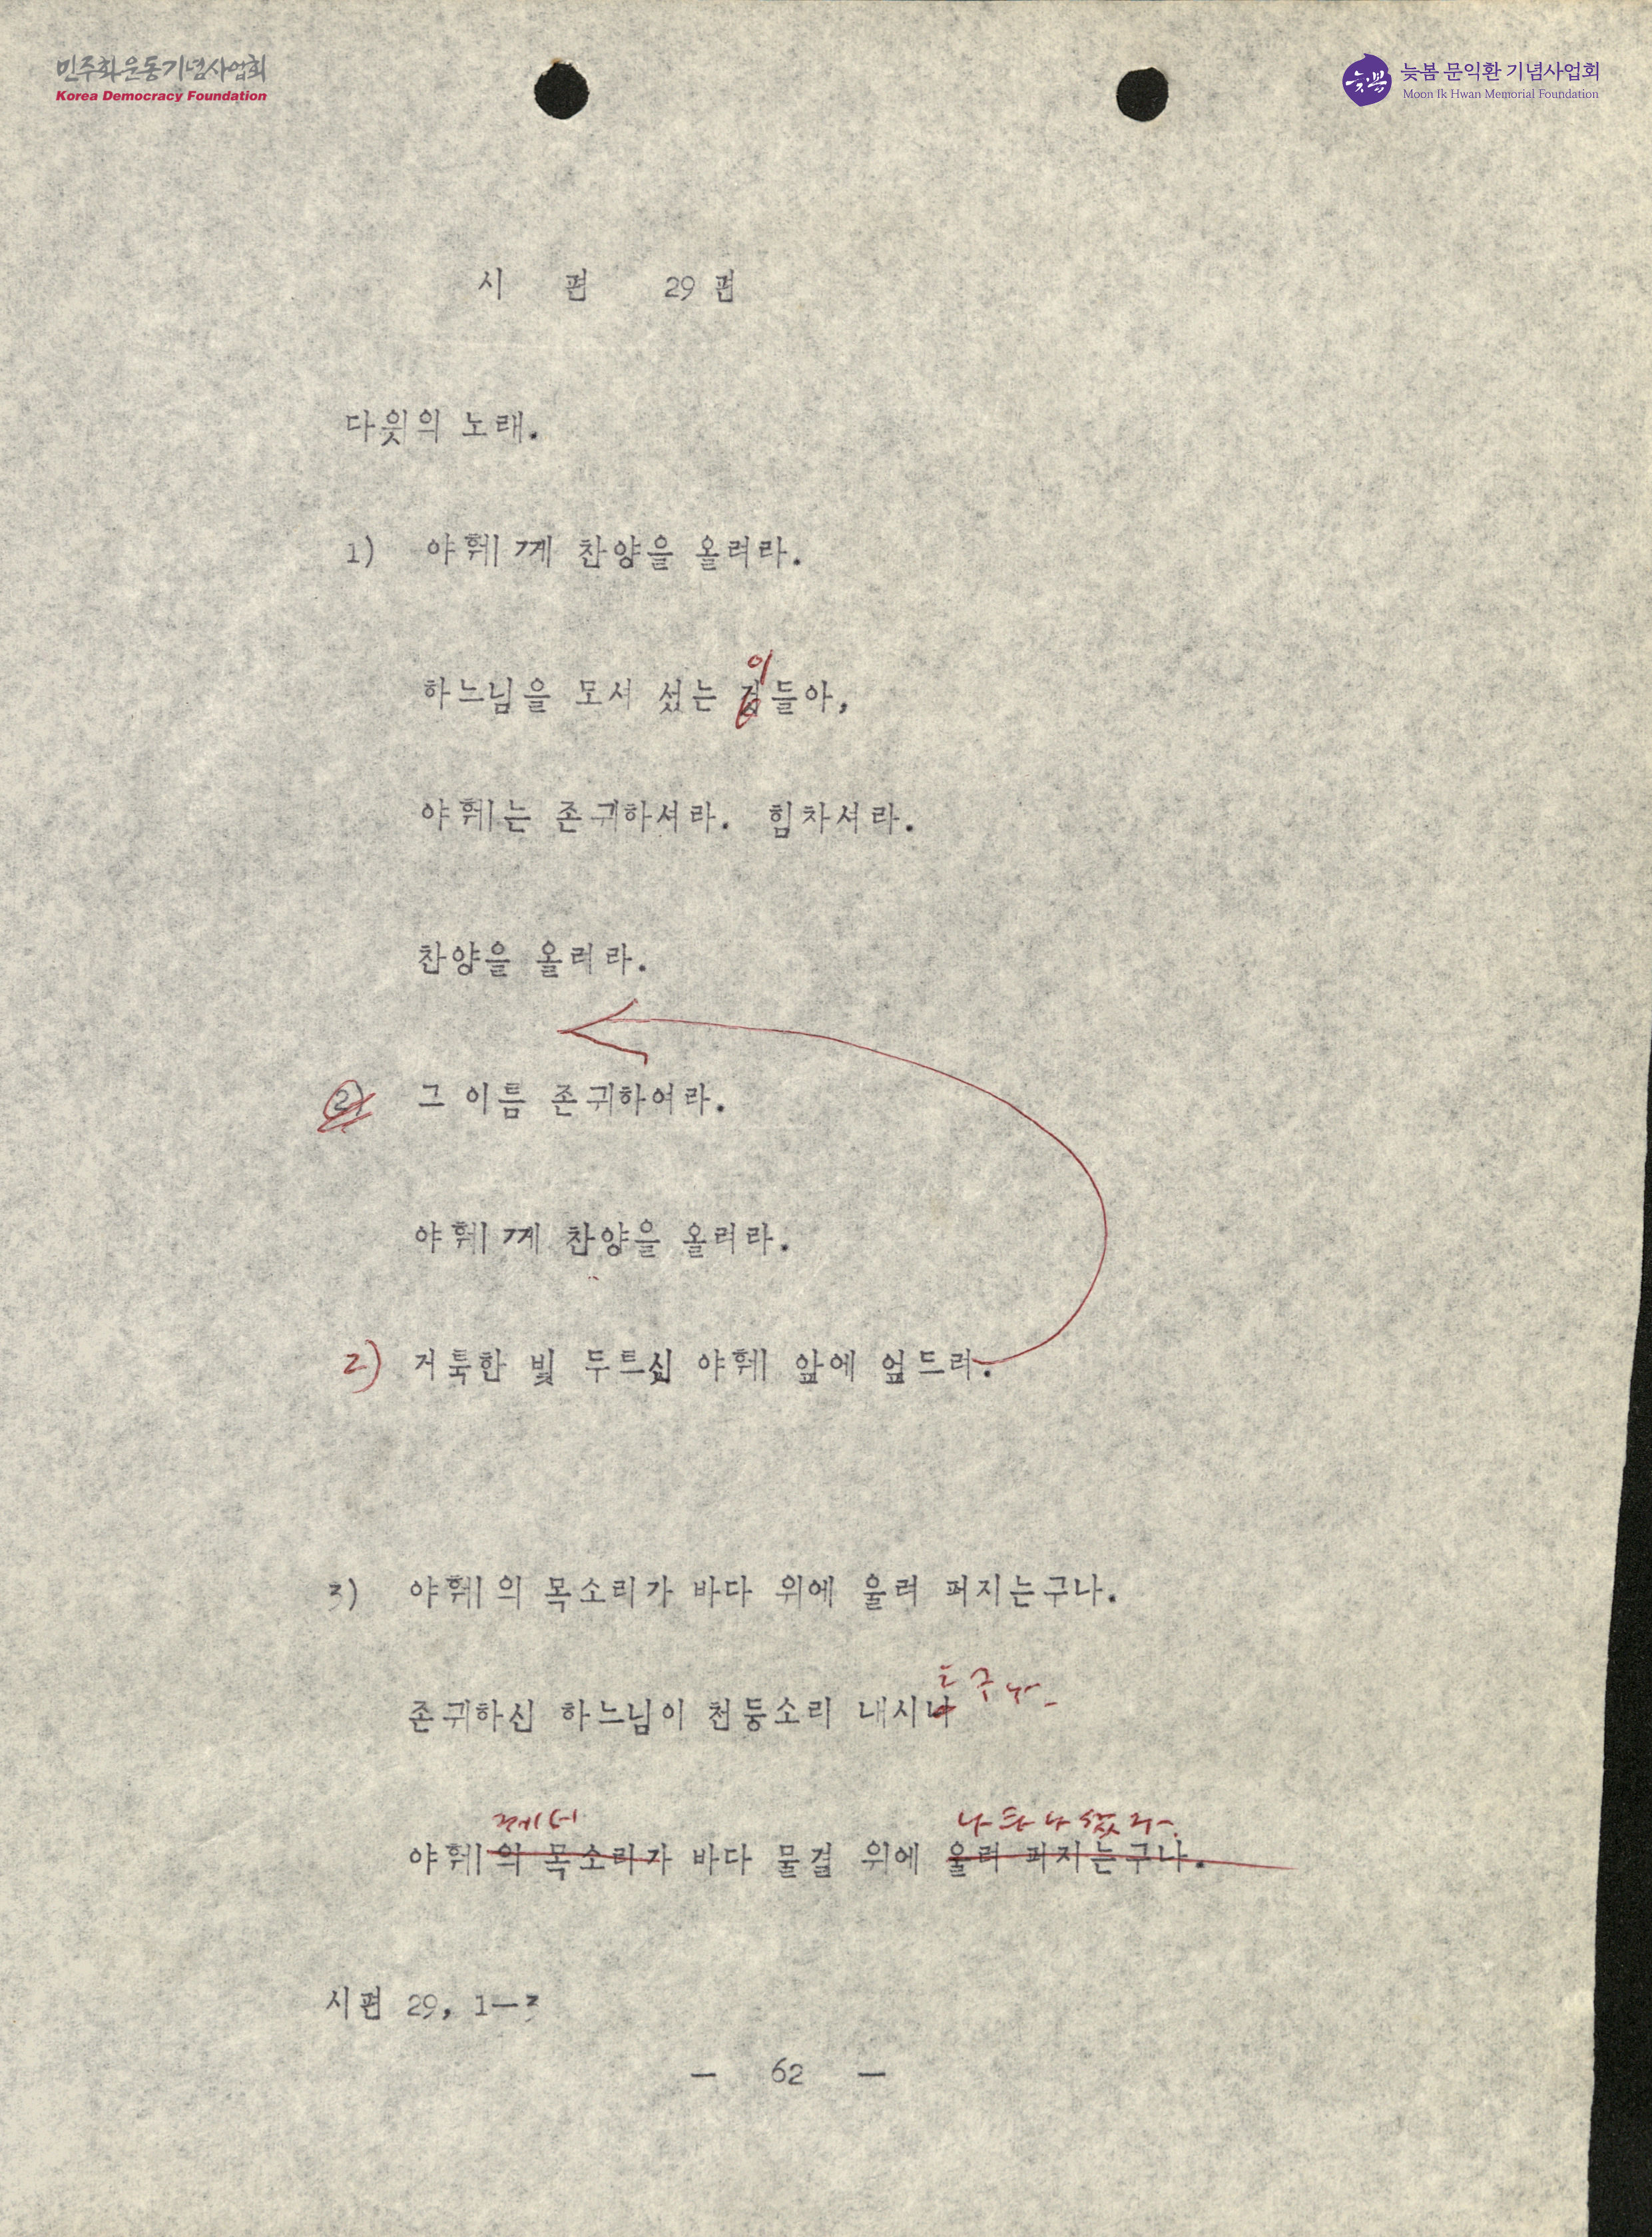 민주화운동기념사업회
Korea Democracy Foundation
늦봄
늦봄 문익환 기념사업회
Moon Ik Hwan Memorial Foundation
시 편 29 편
다윗의 노래.
1) 야훼께 찬양을 올려라.
이
하느님을 모셔 섰는 것들아,
야훼는 존귀하셔라. 힘차셔라.
찬양을 올려라.
2) 그 이름 존귀하여라.
야훼께 찬양을 올려라.
2) 거룩한 빛 두르신 야훼 앞에 엎드려.
3) 야훼의 목소리가 바다 위에 울려 퍼지는구나.
는구나.
존귀하신 하느님이 천둥소리 내시니
께서 나타나셨구나.
야훼의 목소리가 바다 물결 위에 울려 퍼지는구나.
시편 29, 1—3
— 62 —